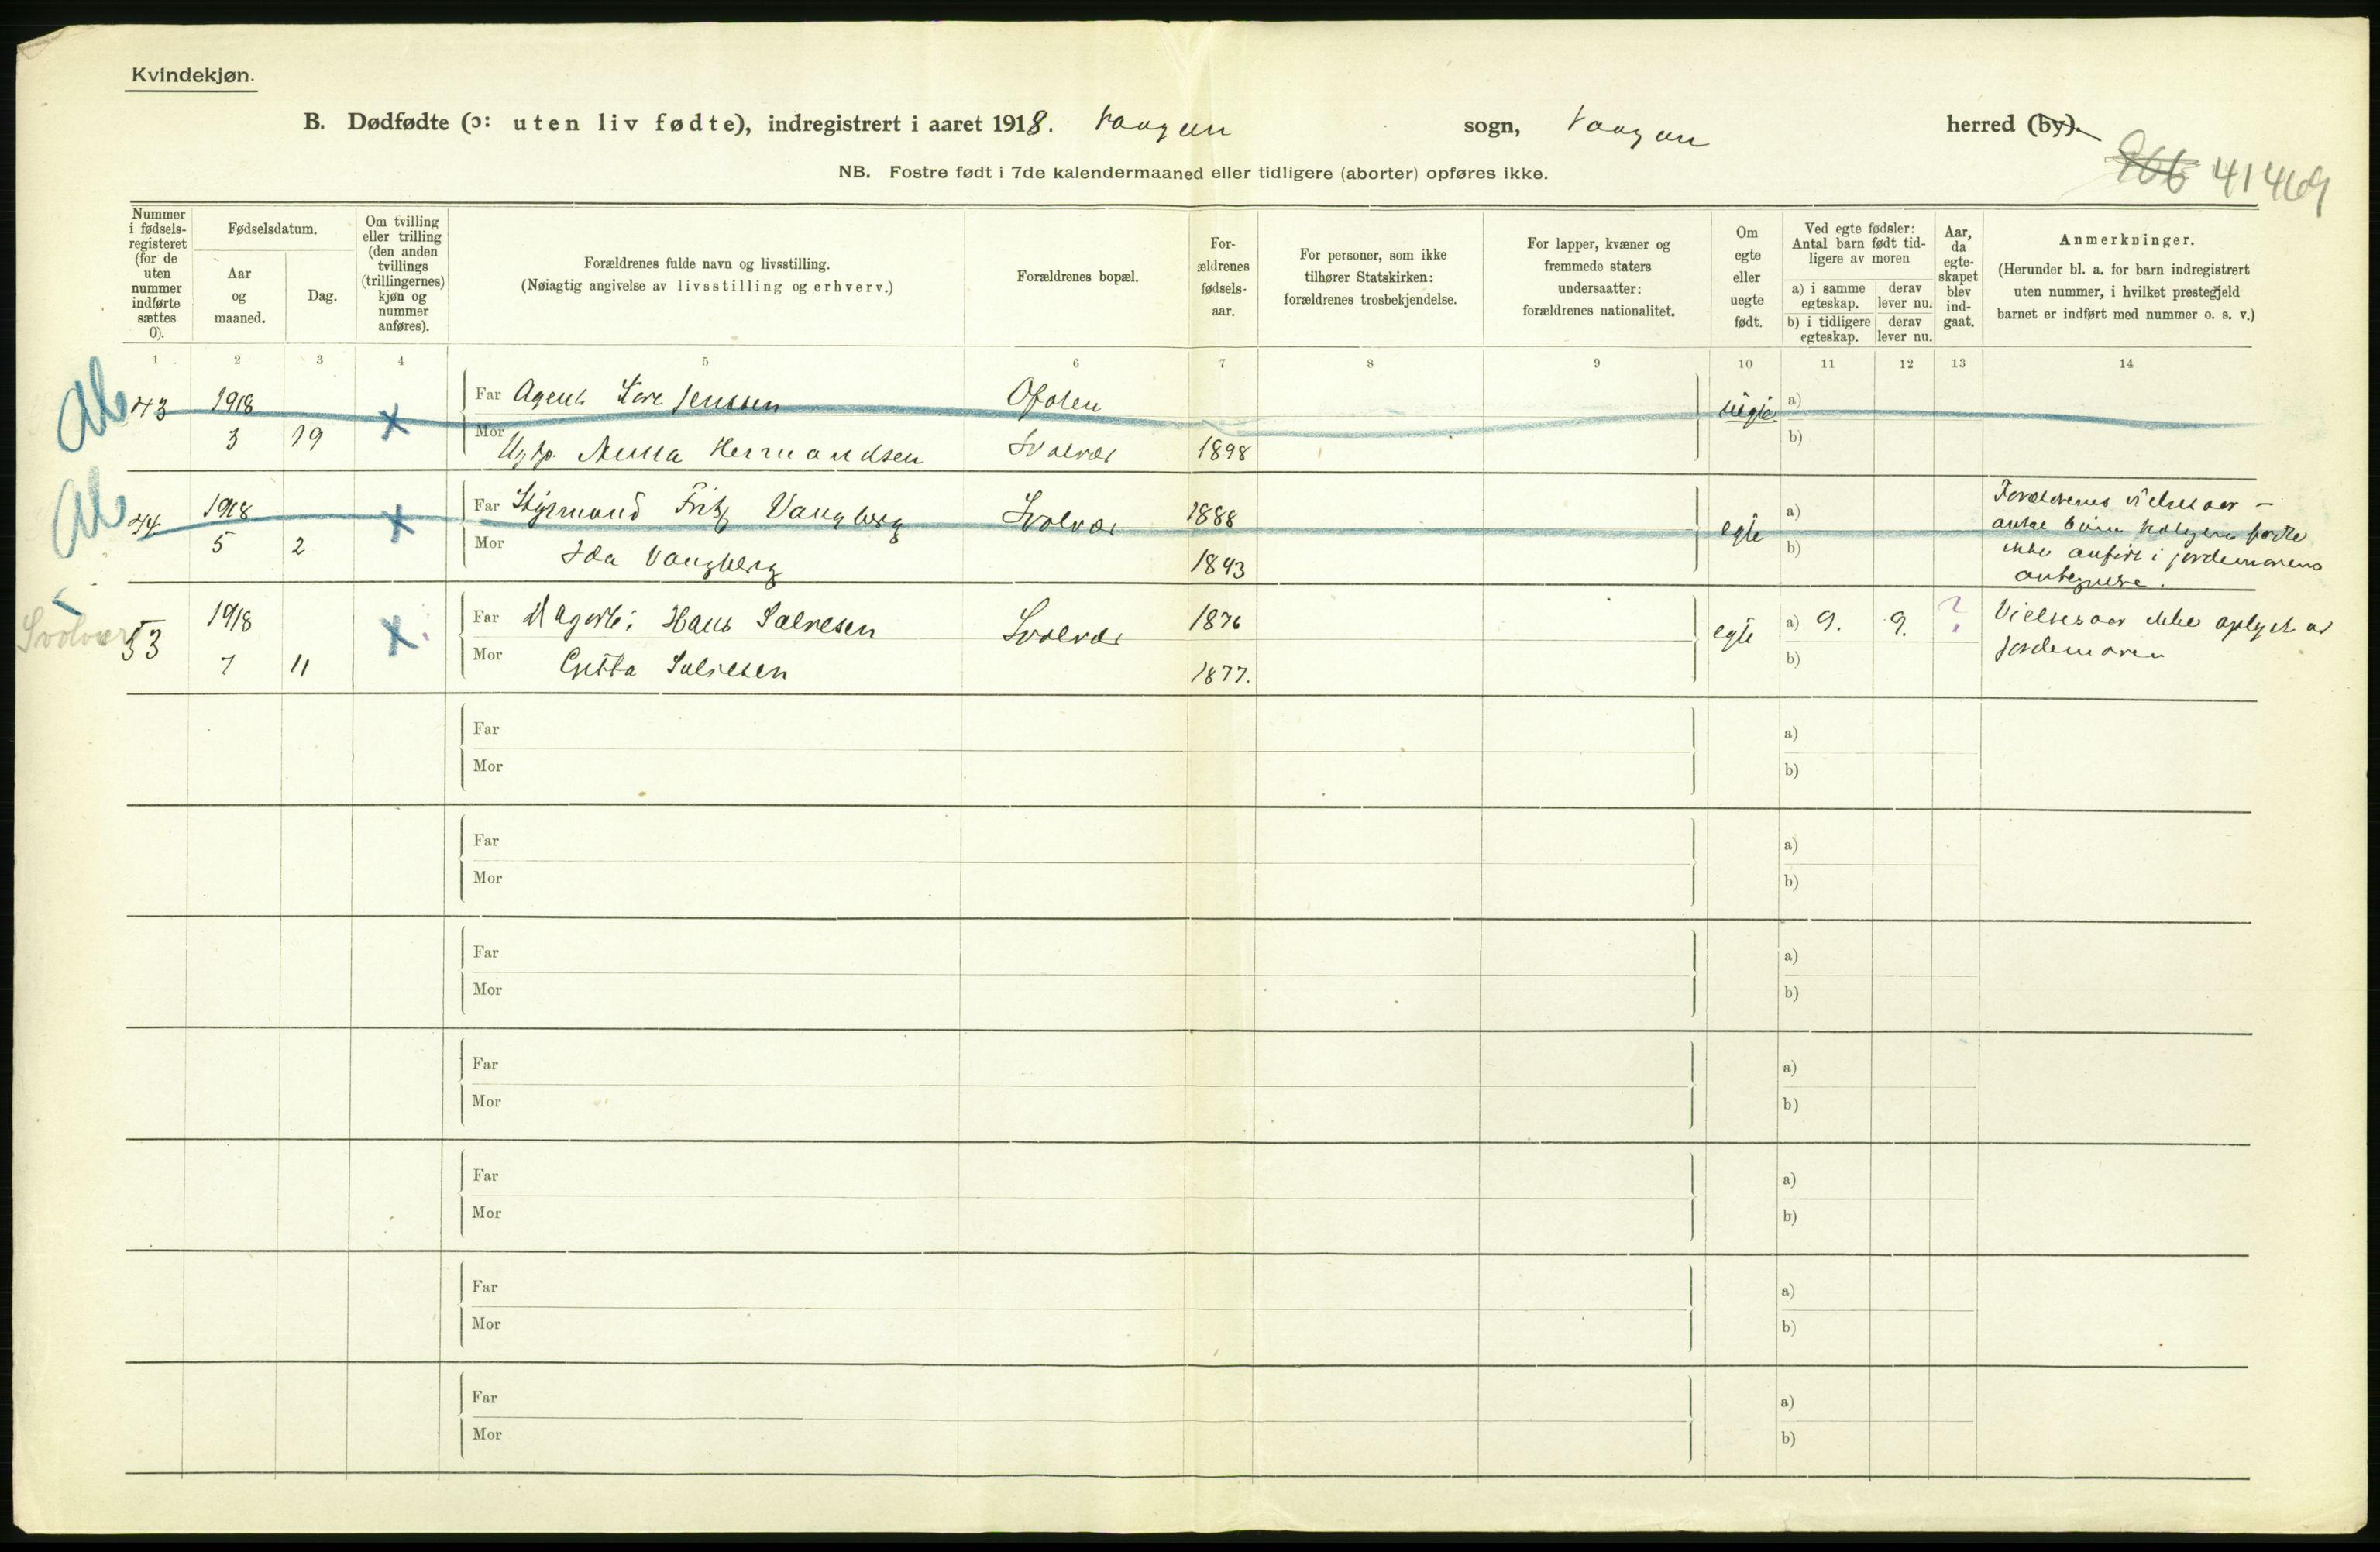 Kvindekjøn.
B. Dødfødte (ɔ: uten liv fødte), indregistrert i aaret 1918. Vaagan sogn, Vaagan herred (by).
NB. Fostre født i 7de kalendermaaned eller tidligere (aborter) opføres ikke.
866 41469
Nummer i fødsels-registeret (for de uten nummer indførte sættes 0).
Fødselsdatum.
Aar og maaned.
Dag.
Om tvilling eller trilling (den anden tvillings (trillingernes) kjøn og nummer anføres).
Forældrenes fulde navn og livsstilling.
(Nøiagtig angivelse av livsstilling og erhverv.)
Forældrenes bopæl.
For-ældrenes fødsels-aar.
For personer, som ikke tilhører Statskirken: forældrenes trosbekjendelse.
For lapper, kvæner og fremmede staters undersaatter: forældrenes nationalitet.
Om egte eller uegte født.
Ved egte fødsler: Antal barn født tid-ligere av moren
a) i samme egteskap.
derav lever nu.
b) i tidligere egteskap.
derav lever nu.
Aar, da egte-skapet blev ind-gaat.
Anmerkninger.
(Herunder bl. a. for barn indregistrert uten nummer, i hvilket prestegjeld barnet er indført med nummer o. s. v.)
1 2 3 4 5 6 7 8 9 10 11 12 13 14
43 1918 Far Agent Jenssen Ofoten uegte a)
3 19 Mor Ugp. Anna Hermandsen Svolvær 1898 b)
44 1918 Far Styrmand Fritz Vangberg Svolvær 1888 egte a) Forældrenes vielsesaar –
5 2 Mor Ida Vangberg 1893 b) antal barn tidligere fødte
ikke anført i jordemorens
Svolvær
53 1918 Far Hans Salvesen Svolvær 1876 egte a) 9. 9. ? Vielsesaar ikke oplyst av
7 11 Mor Salvesen 1877. b) jordemoren
Far a)
Mor b)
Far a)
Mor b)
Far a)
Mor b)
Far a)
Mor b)
Far a)
Mor b)
Far a)
Mor b)
Far a)
Mor b)